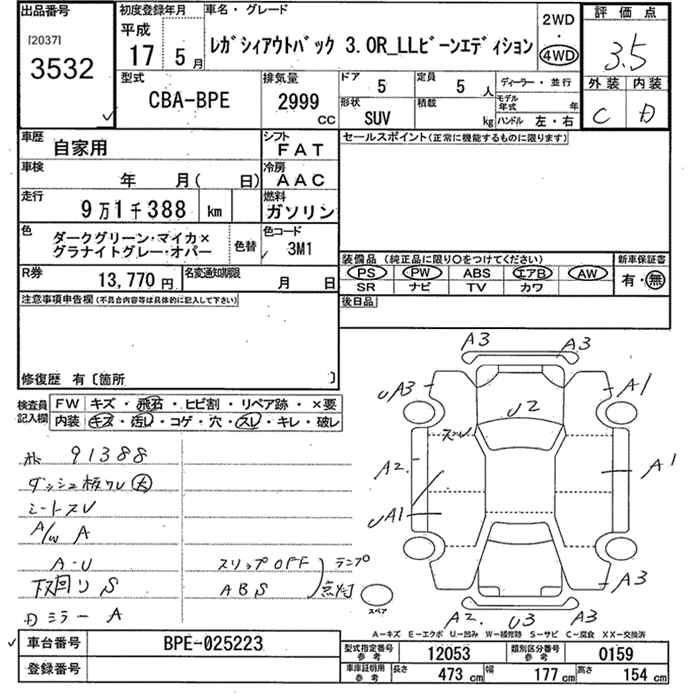 出品番号 初度登録年月 車名・グレード 2WD 評価点
[2037] 平成
3532 17 5月 レガシィアウトバック 3.0R_LLビーンエディション 4WD 3.5
型式 排気量 ドア 5 定員 5人 ディーラー・並行 外装 内装
CBA-BPE 2999 cc 形状 SUV 積載 kg モデル年式 年 ハンドル 左・右 C D
車歴 自家用 シフト FAT セールスポイント(正常に機能するものに限ります)
車検 年 月( 日) 冷房 AAC
走行 9万1千388 km 燃料 ガソリン
色 ダークグリーン・マイカ× 色替 色コード
グラナイトグレー・オパー 3M1
装備品 (純正品に限り○をつけてください) 新車保証書
R券 13,770円 名変通知期限 月 日 PS PW ABS エアB AW 有・無
SR ナビ TV カワ
注意事項申告欄(不具合内容等は具体的に記入して下さい) 後日品
修復歴 有〔箇所 〕
検査員記入欄 FW キズ・飛石・ヒビ割・リペア跡・×要
内装 キズ・汚レ・コゲ・穴・スレ・キレ・破レ
A3 A3
UA3 A1
U2
スレ
A2 A1
UA1
A3
A2 U3 A3
スペア
91388
ダッシュ板ワレ大
シートスレ
A/W A
A・U スリップOFF ランプ
下回リS ABS 点灯
ミラー A
A-キズ E-エクボ U-凹み W-補修跡 S-サビ C-腐食 XX-交換済
車台番号 BPE-025223 型式指定番号 参考 12053 類別区分番号 参考 0159
登録番号 車庫証明用 参考 長さ 473cm 幅 177cm 高さ 154cm